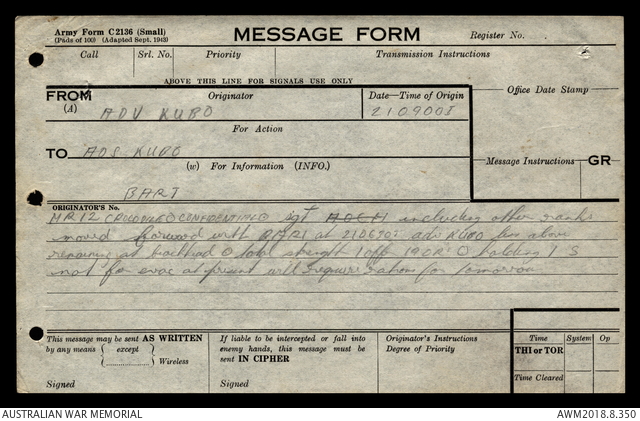 Army Form C 2136 (Small)
(Pads of 100) (Adapted Sept. 1943)
MESSAGE FORM
Register No.
Call Srl. No. Priority Transmission Instructions
ABOVE THIS LINE FOR SIGNALS USE ONLY
FROM
(A)
Originator
Date—Time of Origin
Office Date Stamp
ADV KUBO
210900I
For Action
TO
ADS KUBO
(W) For Information (INFO.)
Message Instructions GR
BART
ORIGINATOR'S No.
MR12 CONFIDENTIAL Sgt including other ranks
moved forward with BART at adv KUBO less above
remaining at beachhead total strength 1 off 19 OR's holding 1 S
not for evac at present will require rations for tomorrow
This message may be sent AS WRITTEN
by any means { except }
Wireless
Signed
If liable to be intercepted or fall into
enemy hands, this message must be
sent IN CIPHER
Signed
Originator's Instructions
Degree of Priority
Time System Op
THI or TOR
Time Cleared
AUSTRALIAN WAR MEMORIAL
AWM2018.8.350